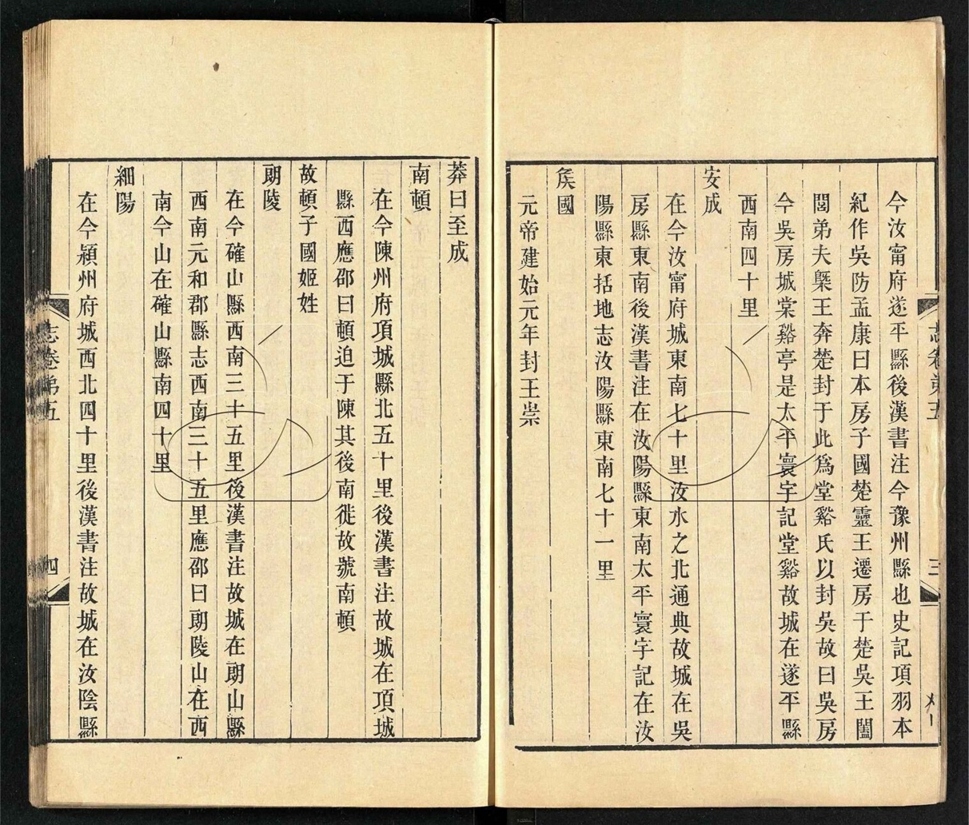 今汝甯府遂平縣後漢書注今豫州縣也史記項羽本
紀作吳防孟康曰本房子國楚靈王遷房于楚吳王闔
閭弟夫槩王奔楚封于此爲堂谿氏以封吳故曰吳房
今吳房城棠谿亭是太平寰宇記堂谿故城在遂平縣
西南四十里
安成
在今汝甯府城東南七十里汝水之北通典故城在吳
房縣東南後漢書注在汝陽縣東南太平寰宇記在汝
陽縣東括地志汝陽縣東南七十一里
矦國
元帝建始元年封王崇
莽曰至成
南頓
在今陳州府項城縣北五十里後漢書注故城在項城
縣西應邵曰頓迫于陳其後南徙故號南頓
故頓子國姬姓
朗陵
在今確山縣西南三十五里後漢書注故城在朗山縣
西南元和郡縣志西南三十五里應邵曰朗陵山在西
南今山在確山縣南四十里
細陽
在今潁州府城西北四十里後漢書注故城在汝陰縣
志卷弟五
四